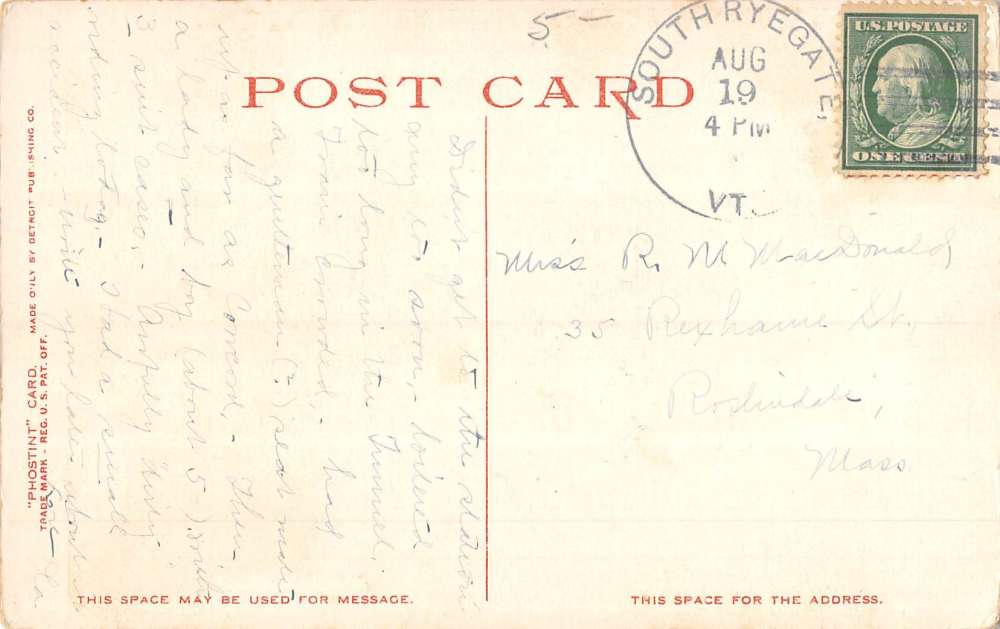 5-
SOUTH RYEGATE,
AUG
19
4 PM
VT.
U.S. POSTAGE
ONE CENT
POST CARD
Didn't get to the station
any too soon, - loitered
too long in the Tunnel,
Train crowded, - had
a gentleman (?) seat mate
as far as Concord, - Then
a lady and boy (about 5) with
3 suit cases, - Awfully dirty
today, - Had a small
accident - will you later about
Miss R. M. MacDonald,
35 Rexhame St.,
Roslindale,
Mass
"PHOSTINT" CARD. MADE ONLY BY DETROIT PUBLISHING CO.
TRADE MARK - REG. U. S. PAT. OFF.
THIS SPACE MAY BE USED FOR MESSAGE.
THIS SPACE FOR THE ADDRESS.